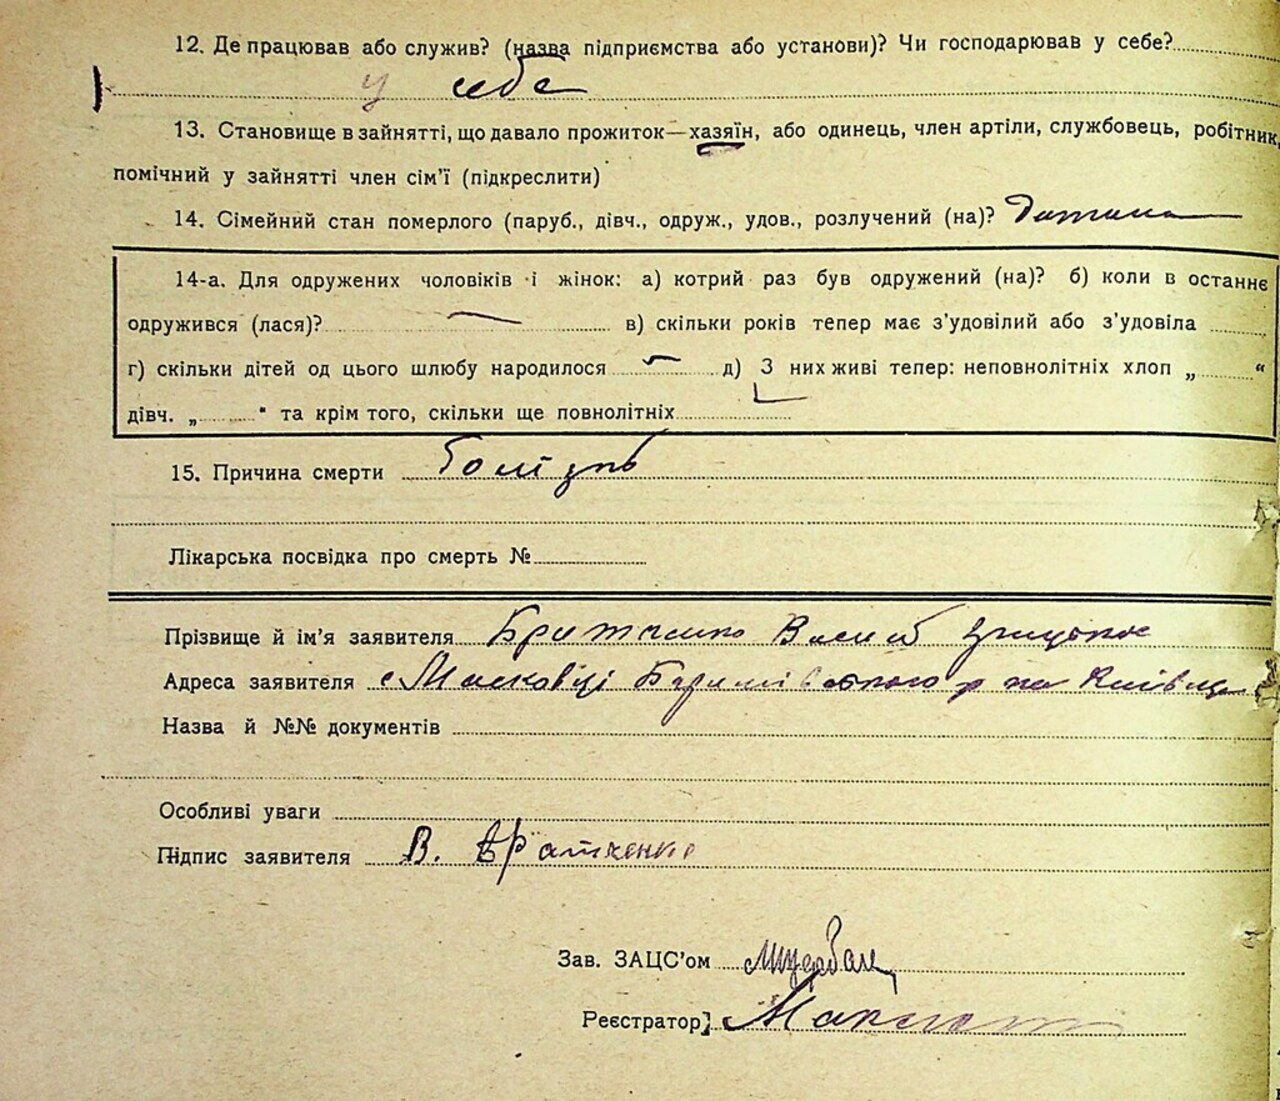 12. Де працював або служив? (назва підприємства або установи)? Чи господарював у себе?
у себе
13. Становище в зайнятті, що давало прожиток—хазяїн, або одинець, член артіли, службовець, робітник,
помічний у зайнятті член сім’ї (підкреслити)
14. Сімейний стан померлого (паруб., дівч., одруж., удов., розлучений (на)? Дитина
14-а. Для одружених чоловіків і жінок: а) котрий раз був одружений (на)? б) коли в останнє
одружився (лася)? — в) скільки років тепер має з’удовілий або з’удовіла
г) скільки дітей од цього шлюбу народилося — д) З них живі тепер: неповнолітніх хлоп „ “
дівч. „ “ та крім того, скільки ще повнолітніх
15. Причина смерти
Лікарська посвідка про смерть №
Прізвище й ім’я заявителя Василь
Адреса заявителя с
Назва й №№ документів
Особливі уваги
Підпис заявителя В. Братченко
Зав. ЗАЦС’ом
Реєстратор